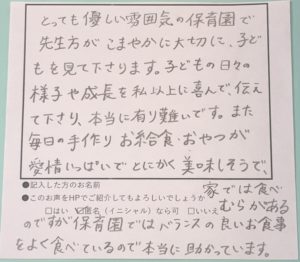 とっても優しい雰囲気の保育園で
先生方がこまやかに大切に、子ど
もを見て下さります。子どもの日々の
様子や成長を私以上に喜んで、伝え
て下さり、本当に有り難いです。また
毎日の手作りお給食・おやつが
愛情いっぱいでとにかく美味しそうで、
●記入した方のお名前
家では食べ
●このお声をHPでご紹介してもよろしいでしょうか
むらがある
□はい ☑匿名（イニシャル）なら可 □いいえ
のですが保育園ではバランスの良いお食事
をよく食べているので本当に助かっています。